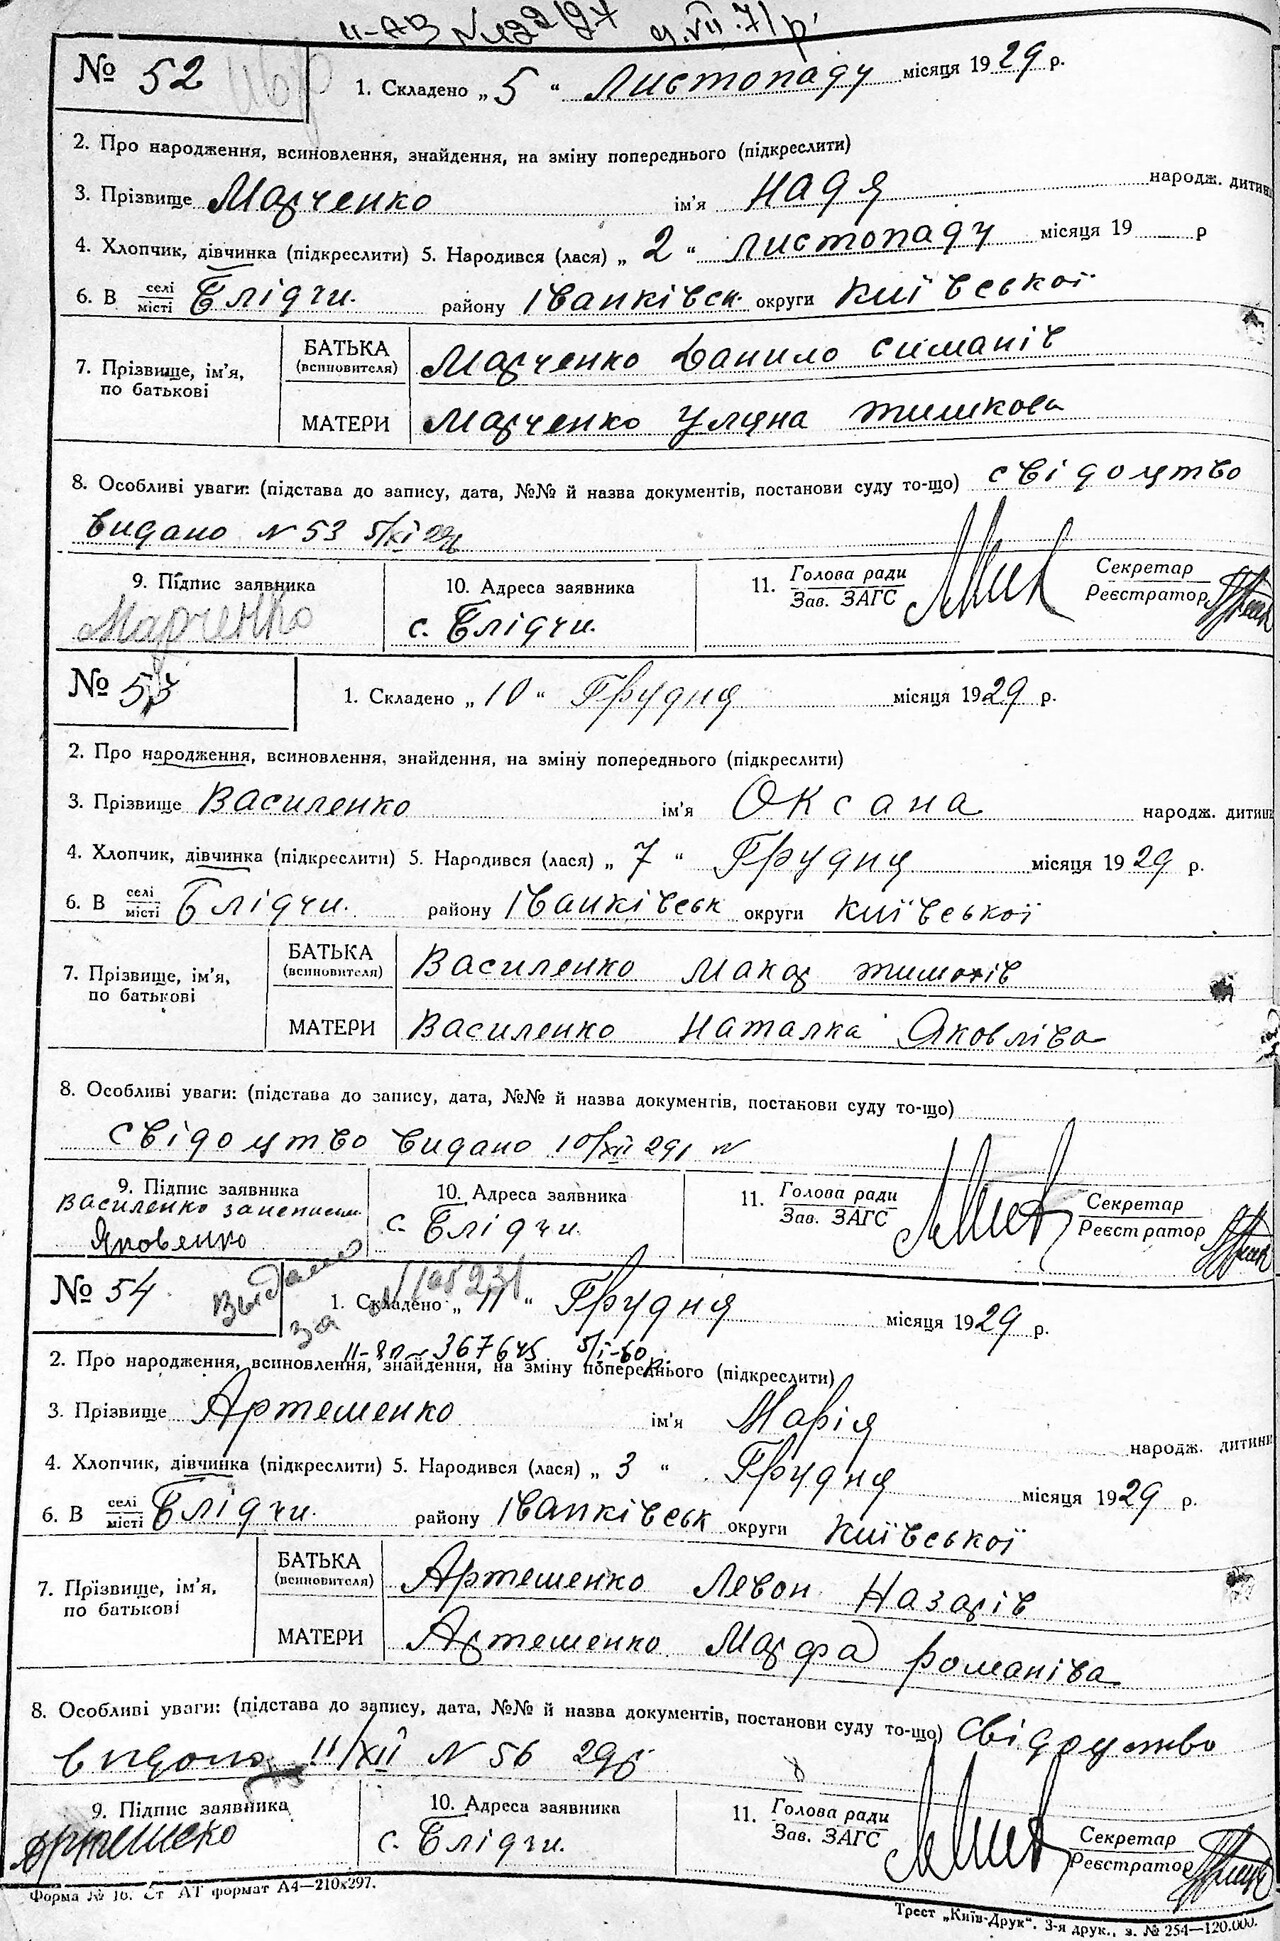 ІІ-АВ №122127 9.VII.71р.
№ 52
1. Складено „ 5 “ Листопаду місяця 1929 р.
2. Про народження, всиновлення, знайдення, на зміну попереднього (підкреслити)
3. Прізвище Марченко ім'я Надя народж. дитини
4. Хлопчик, дівчинка (підкреслити) 5. Народився (лася) „ 2 “ Листопаду місяця 19 р
6. В селі місті Блідчи. району Іванківськ. округи Київської
7. Прізвище, ім'я, по батькові
БАТЬКА (всиновителя) Марченко Данило Симанів
МАТЕРИ Марченко Уляна Тишкова
8. Особливі уваги: (підстава до запису, дата, №№ й назва документів, постанови суду то-що) свідоцтво
видано N 53 5/XI 29р
9. Підпис заявника 10. Адреса заявника 11. Голова ради Зав. ЗАГС Секретар Реєстратор
Марченко с. Блідчи.
№ 53
1. Складено „ 10 “ Грудня місяця 1929 р.
2. Про народження, всиновлення, знайдення, на зміну попереднього (підкреслити)
3. Прізвище Василенко ім'я Оксана народж. дитини
4. Хлопчик, дівчинка (підкреслити) 5. Народився (лася) „ 7 “ Грудня місяця 1929 р.
6. В селі місті Блідчи. району Іванківськ округи Київської
7. Прізвище, ім'я, по батькові
БАТЬКА (всиновителя) Василенко Макар Тимотів
МАТЕРИ Василенко Наталка Яковліва
8. Особливі уваги: (підстава до запису, дата, №№ й назва документів, постанови суду то-що)
свідоцтво видано 10/XII 29р N
9. Підпис заявника 10. Адреса заявника 11. Голова ради Зав. ЗАГС Секретар Реєстратор
Василенко
Яковенко с. Блідчи.
№ 54 Выдано за
1. Складено „ 11 “ Грудня місяця 1929 р.
ІІ-ЯП 367645 5/I-60р.
2. Про народження, всиновлення, знайдення, на зміну попереднього (підкреслити)
3. Прізвище Артеменко ім'я Марія народж. дитини
4. Хлопчик, дівчинка (підкреслити) 5. Народився (лася) „ 3 “ Грудня місяця 1929 р.
6. В селі місті Блідчи. району Іванківськ округи Київської
7. Прізвище, ім'я, по батькові
БАТЬКА (всиновителя) Артеменко Левон Назарів
МАТЕРИ Артеменко Марфа Романіва
8. Особливі уваги: (підстава до запису, дата, №№ й назва документів, постанови суду то-що) Свідоцтво
видано 11/XII N 56 29р
9. Підпис заявника 10. Адреса заявника 11. Голова ради Зав. ЗАГС Секретар Реєстратор
Артеменко с. Блідчи.
Форма № 16. Ст АТ формат А4—210x297.
Трест „Київ-Друк“. 3-я друк., з. № 254—120.000.